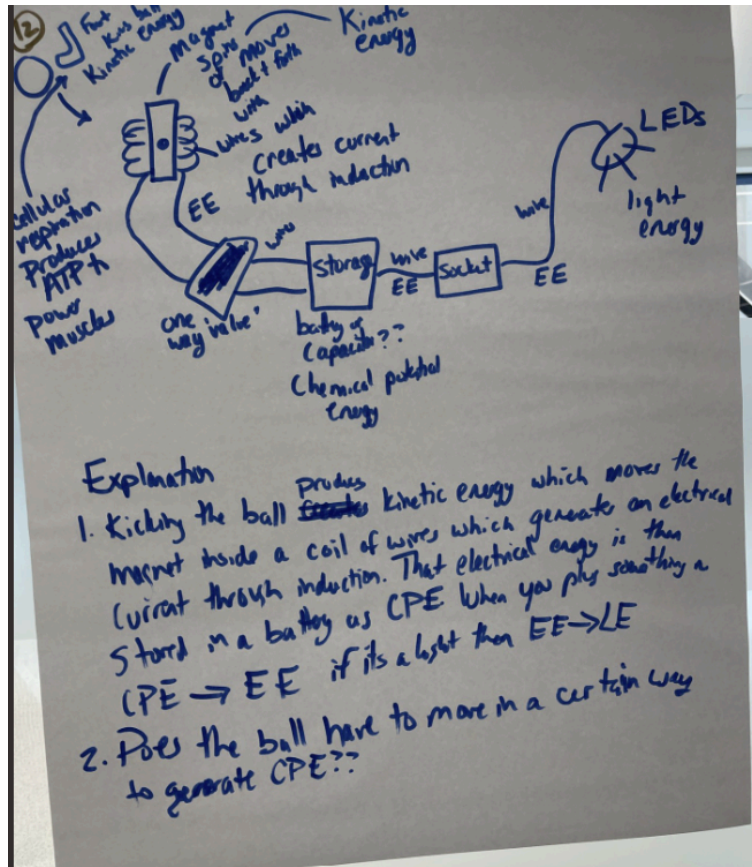 12
Foot
Kicks ball
Kinetic energy
magnet
spins
or moves
back & forth
with
wires which
creates current
through induction
Kinetic
energy
cellular
respiration
Produces
ATP to
power
muscles
EE
wires
one
way "valve"
Storage
battery or
Capacitor??
Chemical potential
energy
wire
EE
Socket
wire
EE
LEDs
light
energy
Explanation
1. Kicking the ball produces kinetic energy which moves the
magnet inside a coil of wires which generates an electrical
current through induction. That electrical energy is then
stored in a battery as CPE When you plug something in
CPE → EE if its a light then EE → LE
2. Does the ball have to move in a certain way
to generate CPE??